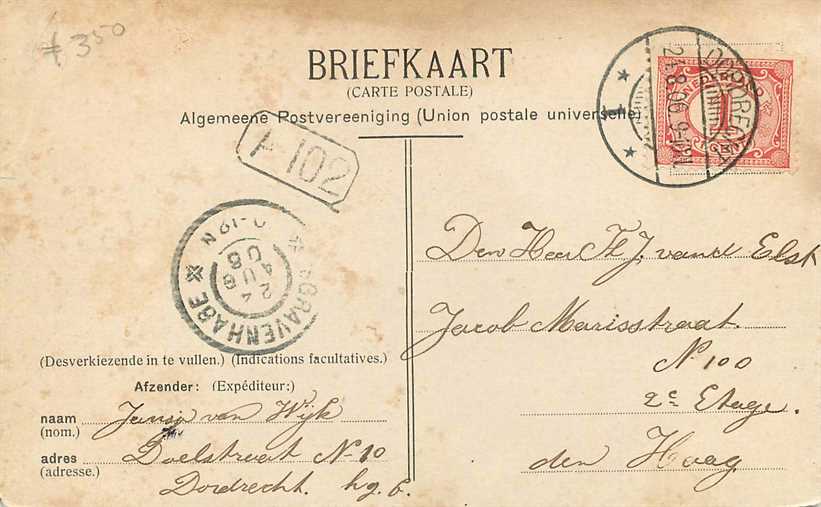 350
BRIEFKAART
(CARTE POSTALE)
Algemeene Postvereeniging (Union postale universelle)
DORDRECHT
24.8.06 9-12V
1
NE
1
CENT
A 102
'S GRAVENHAGE
24 AUG 06
-12 N
Den Heer Th J. van d Elst
Jacob Marisstraat
N 100
2e Etage.
den Haag
(Desverkiezende in te vullen.) (Indications facultatives.)
Afzender: (Expéditeur:)
naam (nom.) Jansje van Wijk
adres (adresse.) Doelstraat N 10
Dordrecht. hg. 6.